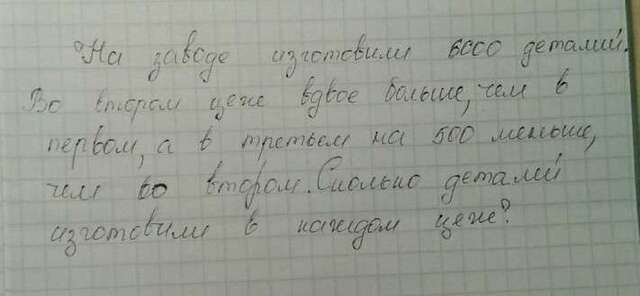 На заводе изготовили 6000 деталий.
Во втором цехе вдвое больше, чем в
первом, а в третьем на 500 меньше,
чем во втором. Сколько деталий
изготовили в каждом цехе?